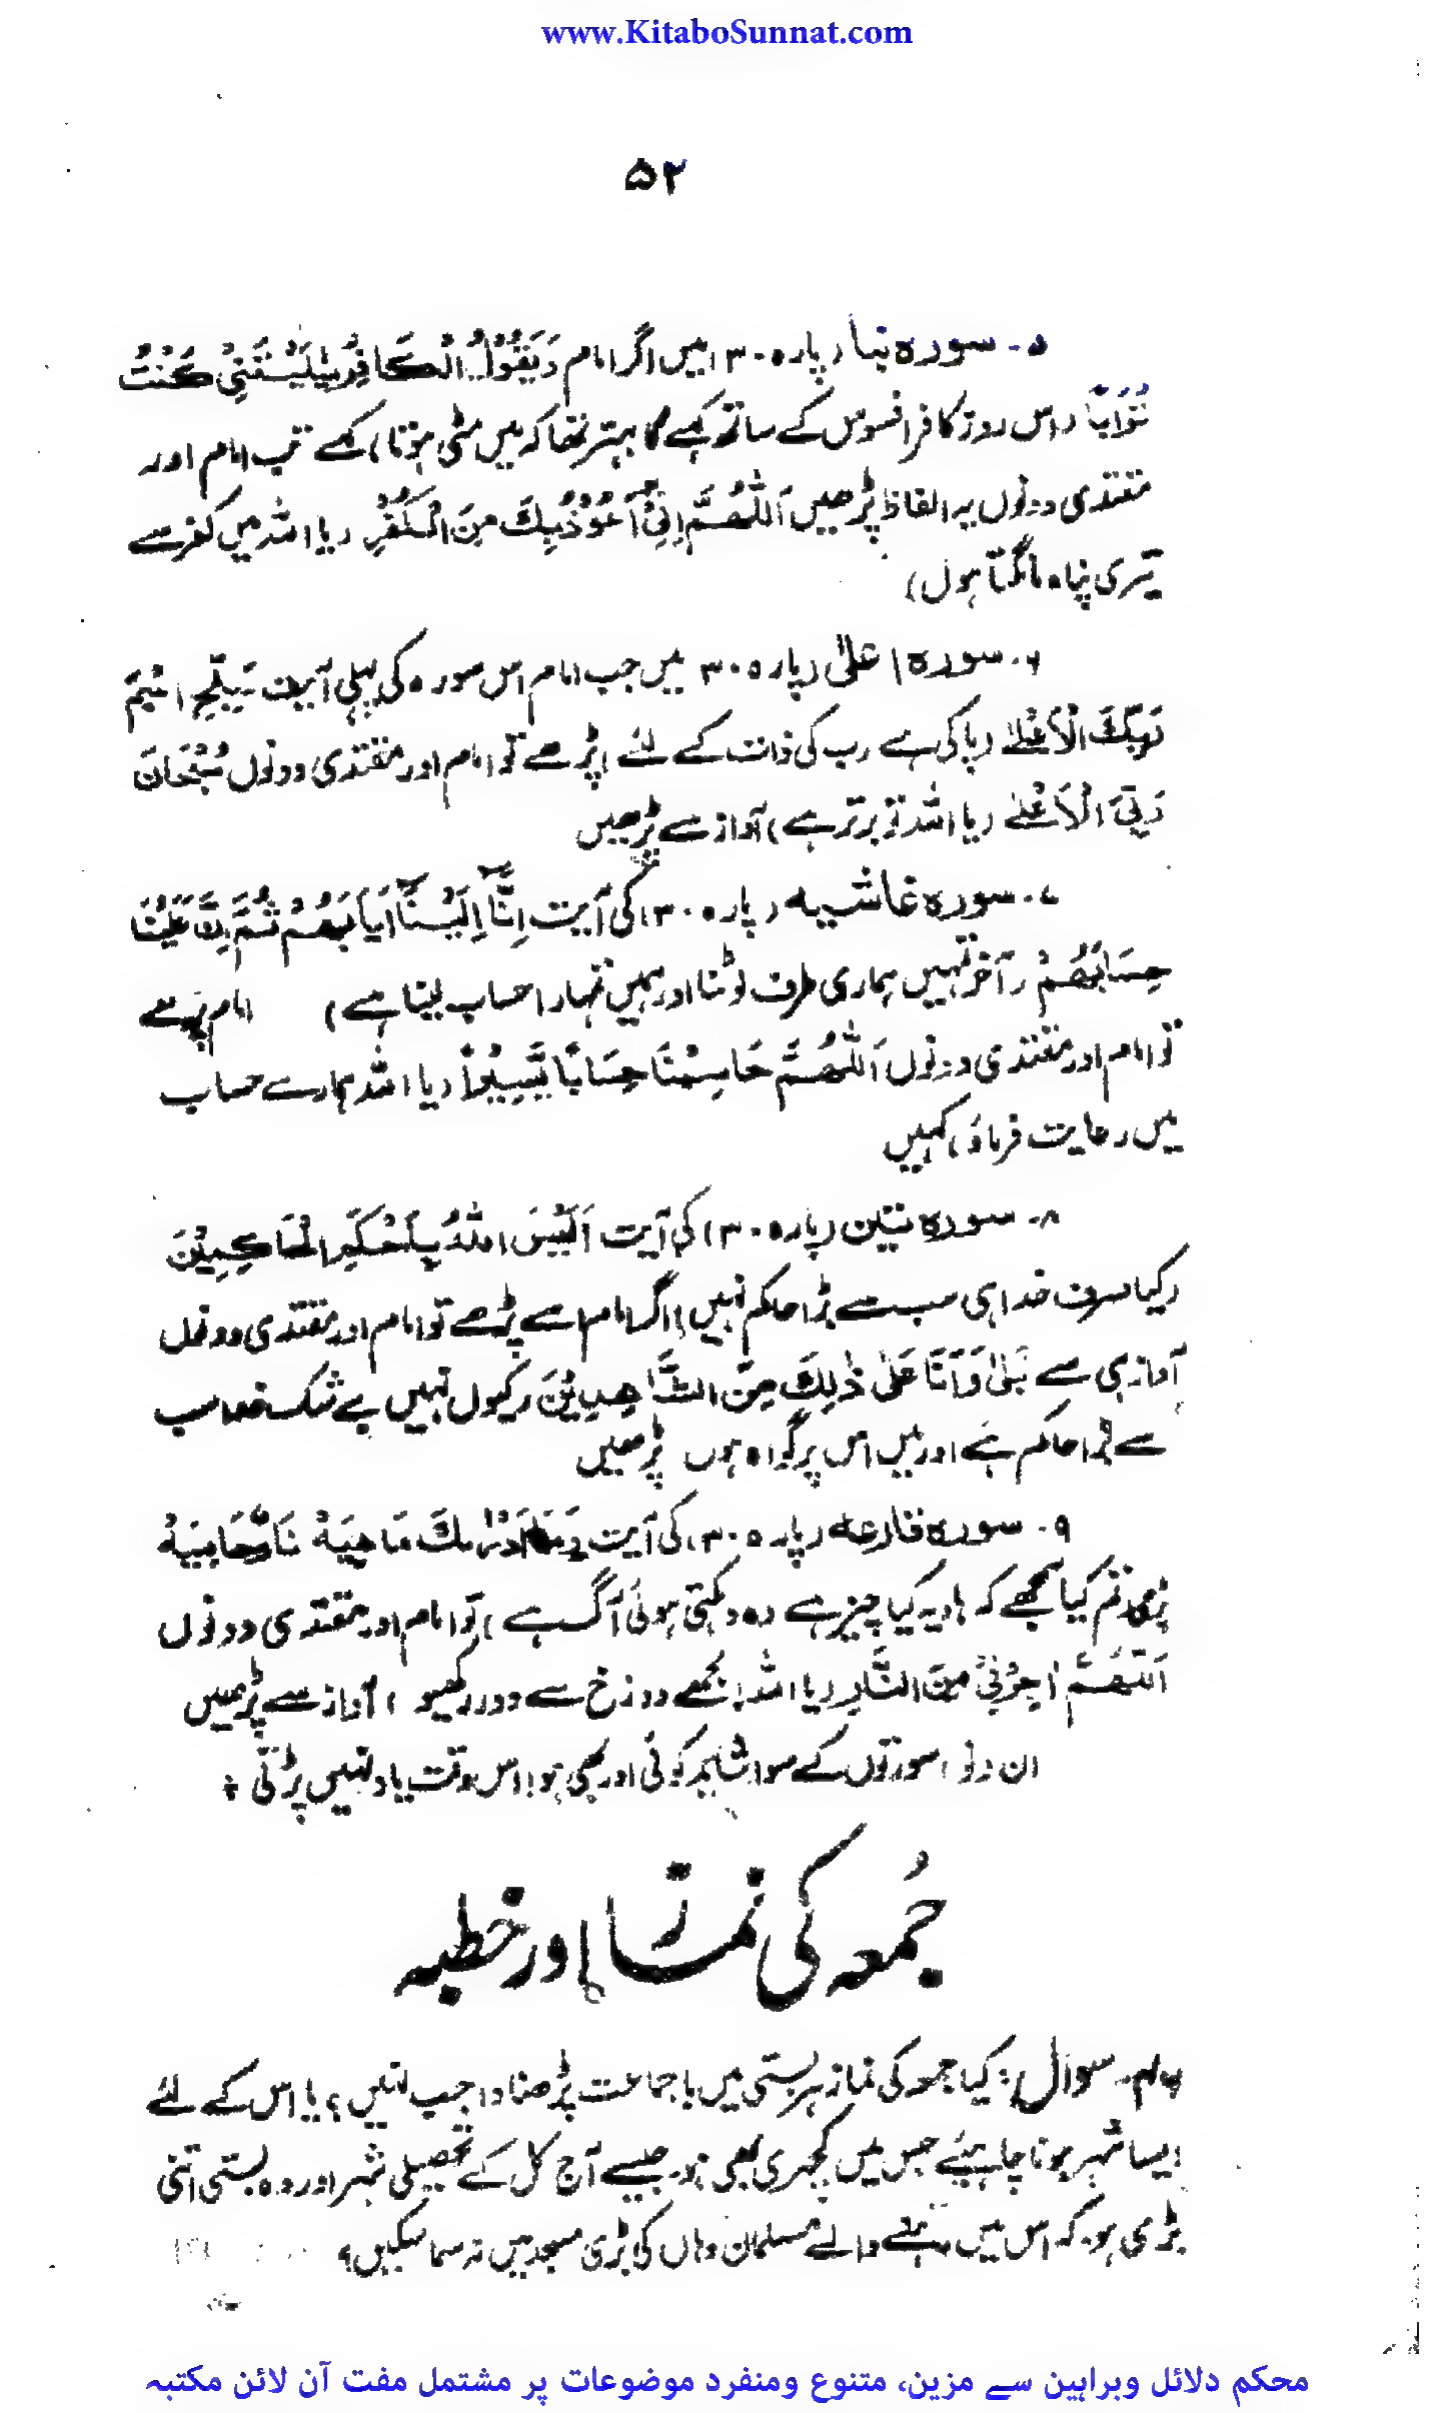 www.KitaboSunnat.com
۵۲
۵۔ سورہ نبا (پارہ ۳۰) میں اگر امام وَيَقُوْلُ الْكَافِرُ يٰلَيْتَنِيْ كُنْتُ
تُرَابًا (اس روز کافر افسوس کے ساتھ کہے گا بہتر تھا کہ میں مٹی ہوتا) کہے تب امام اور
مقتدی دونوں یہ الفاظ پڑھیں اَللّٰهُمَّ اِنِّيْ اَعُوْذُ بِكَ مِنَ الْكُفْرِ (یا اللہ میں کفر سے
تیری پناہ مانگتا ہوں)
۶۔ سورہ اعلیٰ (پارہ ۳۰ میں جب امام اس سورہ کی پہلی آیت سَبِّحِ اسْمَ
رَبِّكَ الْاَعْلٰے (پاکی ہے رب کی ذات کے لئے) پڑھے تو امام اور مقتدی دونوں سُبْحَانَ
رَبِّيَ الْاَعْلٰے (یا اللہ تو برتر ہے) آواز سے پڑھیں
۷۔ سورہ غاشیہ (پارہ ۳۰) کی آیت اِنَّ اِلَيْنَا اِيَابَهُمْ ثُمَّ اِنَّ عَلَيْنَا
حِسَابَهُمْ (آخر تمہیں ہماری طرف لوٹنا اور ہمیں تمہارا حساب لینا ہے) امام پڑھے
تو امام اور مقتدی دونوں اَللّٰهُمَّ حَاسِبْنَا حِسَابًا يَّسِيْرًا (یا اللہ ہمارے حساب
میں رعایت فرماؤ) کہیں
۸۔ سورہ تین (پارہ ۳۰) کی آیت اَلَيْسَ اللّٰهُ بِاَحْكَمِ الْحَاكِمِيْنَ
(کیا صرف خدا ہی سب سے بڑا حاکم نہیں) اگر امام اسے پڑھے تو امام اور مقتدی دونوں
آواز ہی سے بَلٰى وَاَنَا عَلٰى ذٰلِكَ مِنَ الشَّاهِدِيْنَ (کیوں نہیں بے شک خدا سب
سے بڑا حاکم ہے اور میں اس پر گواہ ہوں پڑھیں
۹۔ سورہ قارعہ (پارہ ۳۰) کی آیت وَمَا اَدْرٰىكَ مَاهِيَهْ نَارٌ حَامِيَهْ
پڑھی تم کیا سمجھے کہ ہاویہ کیا چیز ہے وہ دہکتی ہوئی آگ ہے) تو امام اور مقتدی دونوں
اَللّٰهُمَّ اَجِرْنِيْ مِنَ النَّارِ (یا اللہ! مجھے دوزخ سے دور رکھیو) آواز سے پڑھیں
ان سورتوں کے سوا شاید کوئی اور بھی ہو! اس وقت یاد نہیں پڑتی ÷
جُمعہ کی نماز اور خطبہ
سوال: کیا جمعہ کی نماز ہر بستی میں باجماعت پڑھنا واجب نہیں؟ یا اس کے لئے
ایسا شہر ہونا چاہیئے جس میں کچہری بھی ہو۔ جیسے آج کل کے تحصیلی شہر اور وہ بستی اتنی
بڑی ہو۔ کہ اس میں بسنے والے مسلمان وہاں کی بڑی مسجد میں نہ سما سکیں؟
محکم دلائل وبراہین سے مزین، متنوع ومنفرد موضوعات پر مشتمل مفت آن لائن مکتبہ